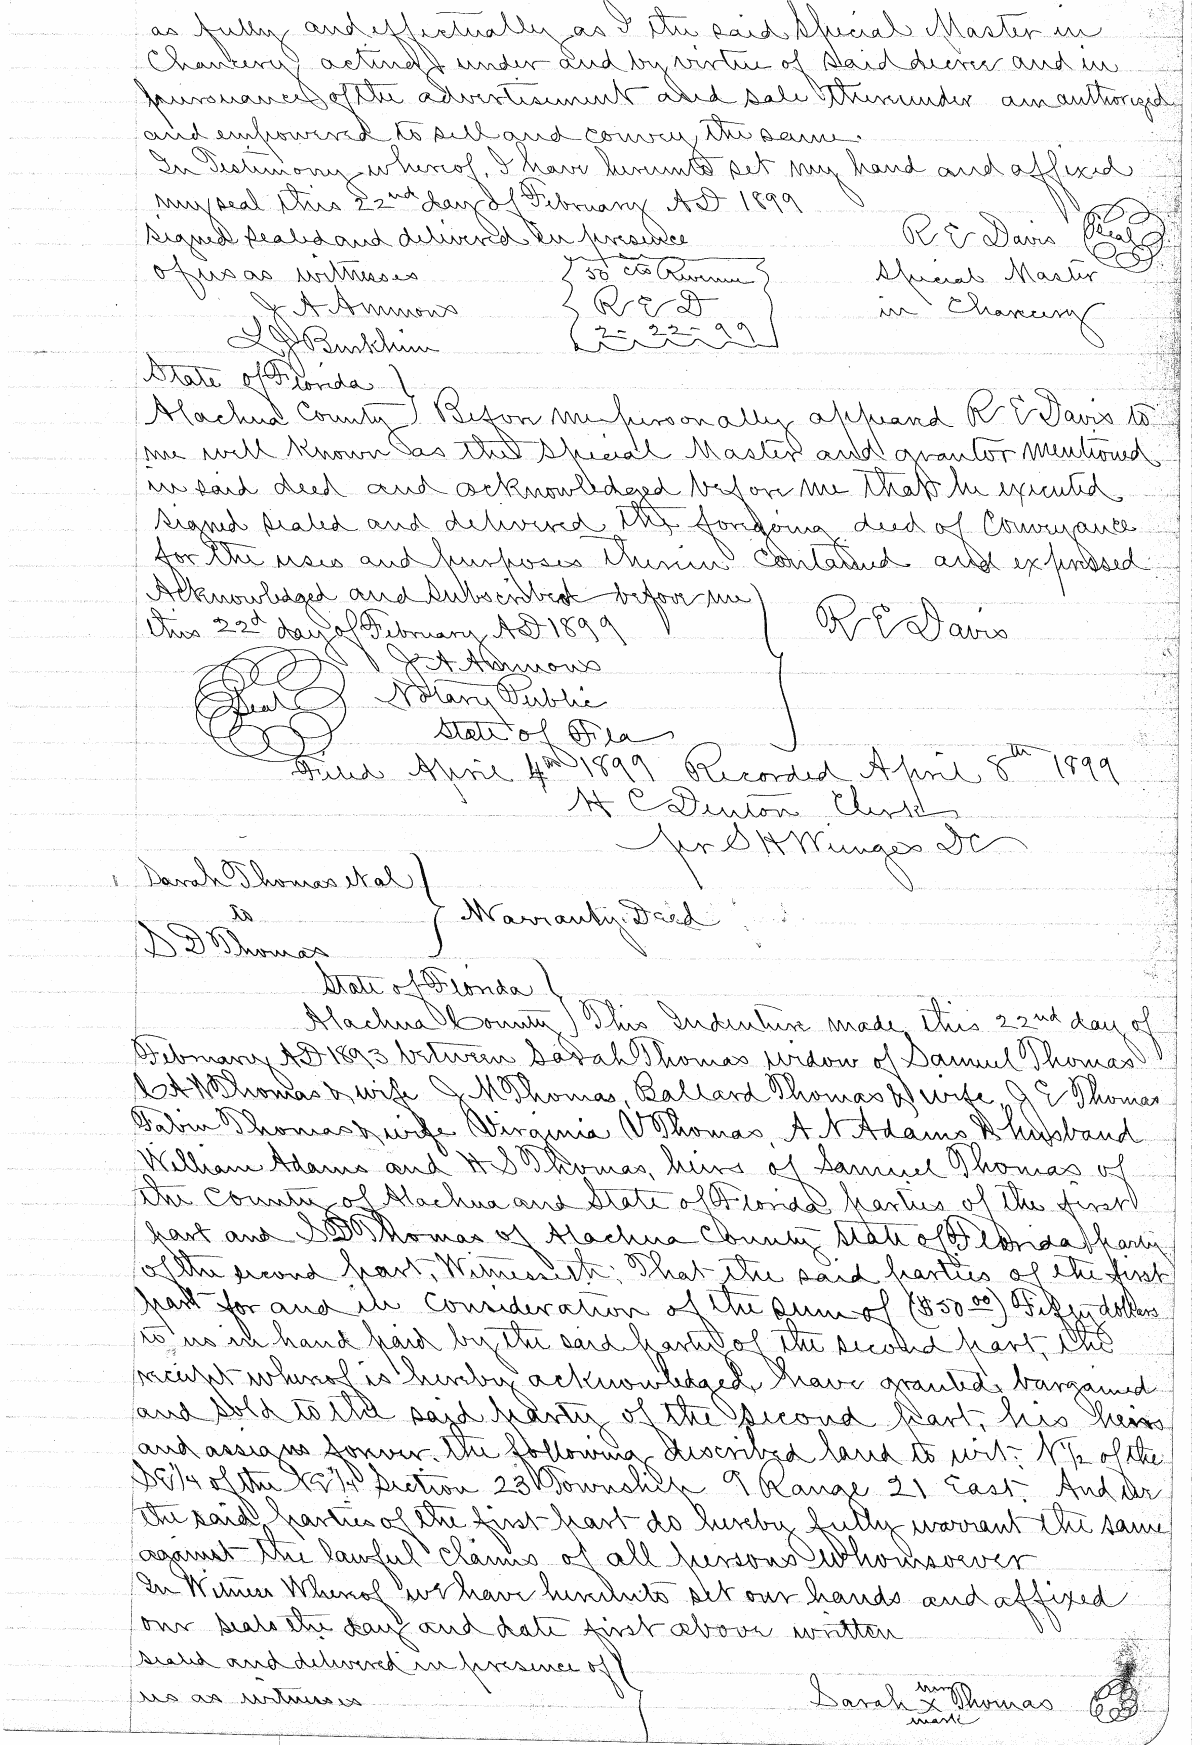 as fully and effectually as I the said Special Master in
Chancery acting under and by virtue of said decree and in
pursuance of the advertisement and sale thereunder am authorized
and empowered to sell and convey the same.
In Testimony whereof, I have hereunto set my hand and affixed
my seal this 22nd day of February AD 1899
signed sealed and delivered in presence
R E Davis (Seal)
of us as witnesses
50 cts Revenue
Special Master
J A Ammons
R E D
in Chancery
2-22-99
State of Florida )
Alachua County ) Before me personally appeard R E Davis to
me well known as the Special Master and grantor mentioned
in said deed and acknowledged before me that he executed
signed sealed and delivered the foregoing deed of Conveyance
for the uses and purposes therein contained and expressed
Acknowledged and Subscribed before me
this 22d day of February AD 1899
R E Davis
J A Ammons
Seal
Notary Public
State of Fla
Filed April 4th 1899 Recorded April 8th 1899
H C Denton Clerk
per S H Wienges DC
Sarah Thomas et al
to
Warranty Deed
S D Thomas
State of Florida )
Alachua County ) This Indenture made this 22nd day of
February AD 1893 between Sarah Thomas widow of Samuel Thomas
Thomas & wife J M Thomas, Ballard Thomas & wife J E Thomas
Fabin Thomas & wife Virginia V Thomas, A N Adams & husband
William Adams and H S Thomas, heirs of Samuel Thomas of
the County of Alachua and State of Florida parties of the first
part and S D Thomas of Alachua County State of Florida party
of the second part, Witnesseth; That the said parties of the first
part for and in consideration of the sum of ($50 00) dollars
to us in hand paid by the said party of the second part, the
receipt whereof is hereby acknowledged, have granted, bargained
and sold to the said party of the second part, his heirs
and assigns forever. the following described land to wit: N½ of the
SE¼ of the NE¼ Section 23 Township 9 Range 21 East. And
the said parties of the first part do hereby fully warrant the same
against the lawful claims of all persons whomsoever
In Witness Whereof we have hereunto set our hands and affixed
our seals the day and date first above written
sealed and delivered in presence of
us as witnesses
her
Sarah x Thomas
mark